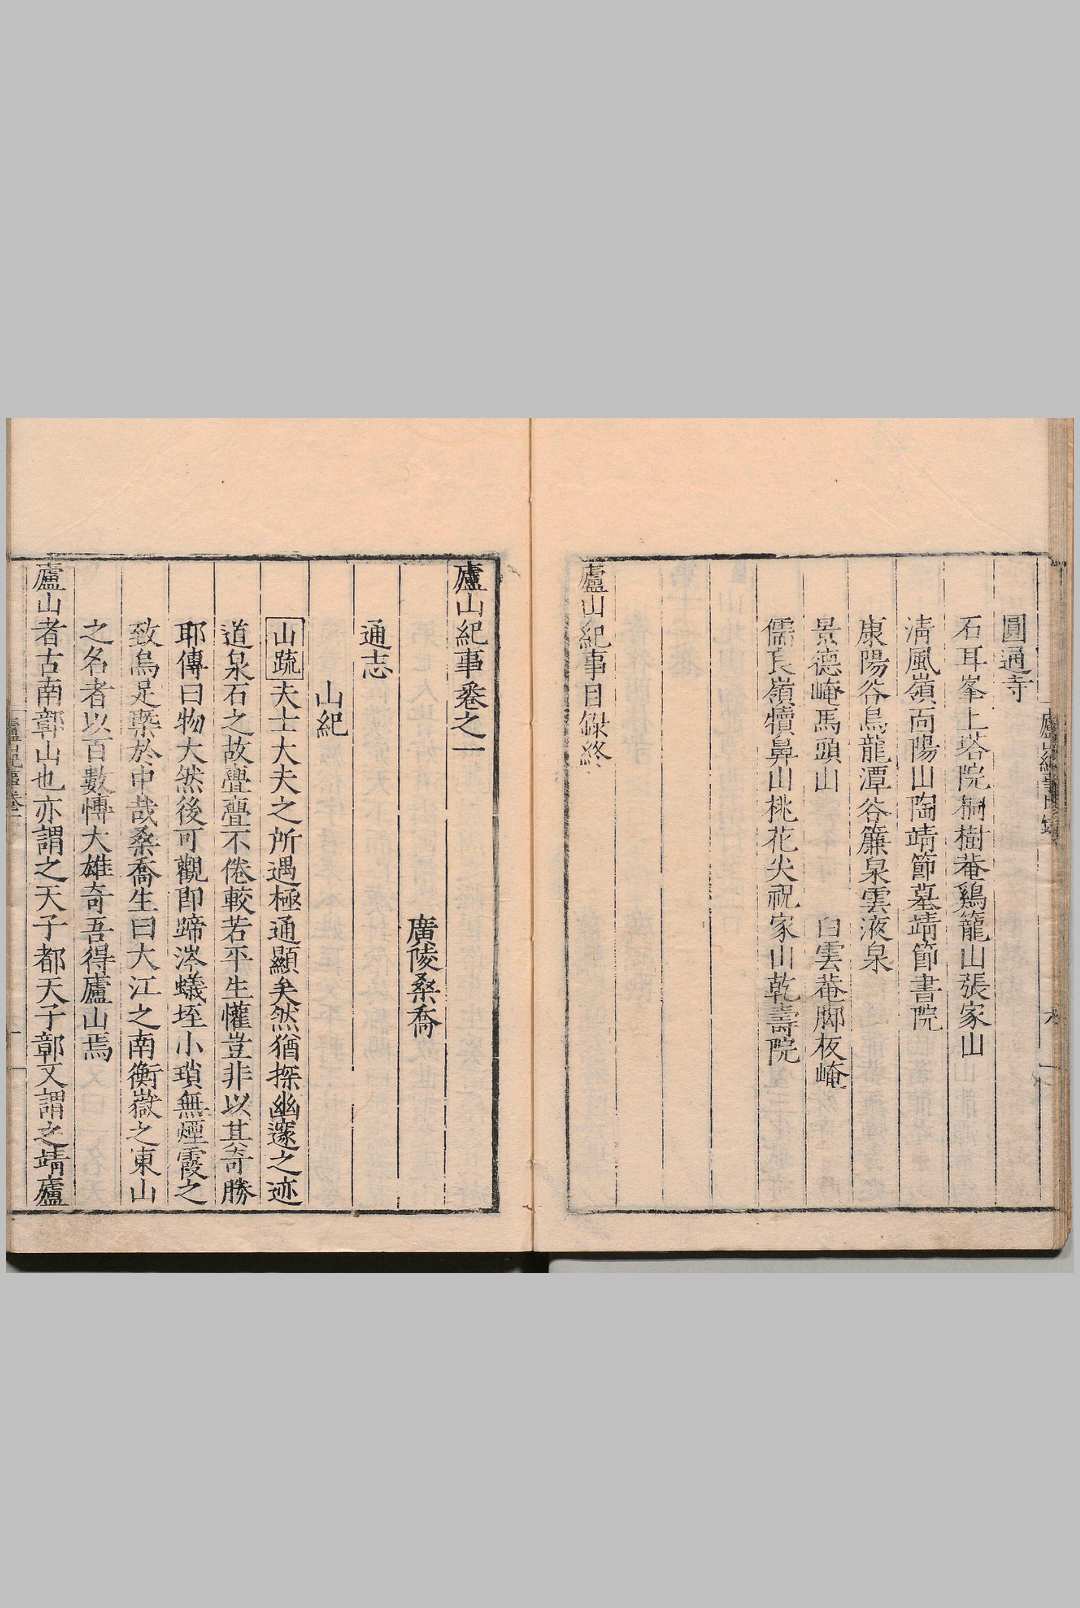 圓通寺
石耳峯上塔院桐樹菴鷄籠山張家山
淸風嶺向陽山陶靖節墓靖節書院
康陽谷烏龍潭谷簾泉雲液泉
景德崦馬頭山 白雲菴脚板崦
儒良嶺犢鼻山桃花尖祝家山乾壽院
廬山紀事目錄終
廬山紀事卷之一
廣陵桑喬
通志
山紀
山疏夫士大夫之所遇極通顯矣然猶探幽邃之迹
道泉石之故亹亹不倦較若平生懽豈非以其奇勝
耶傳曰物大然後可觀卽蹄涔蟻垤小瑣無煙霞之
致烏足樂於中哉桑喬生曰大江之南衡嶽之東山
之名者以百數慱大雄奇吾得廬山焉
廬山者古南鄣山也亦謂之天子都天子鄣又謂之靖廬